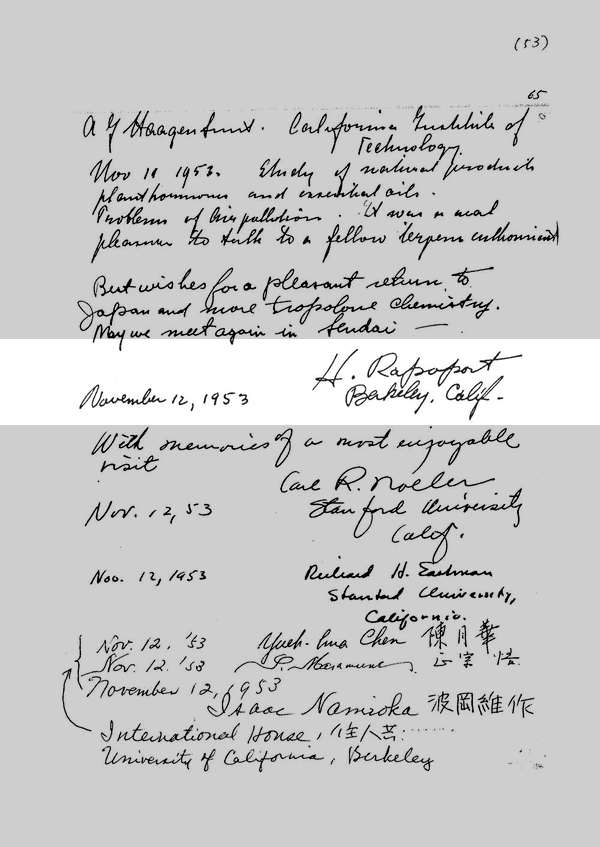 (53)
65
A J Haagen Smit. California Institute of
Technology
Nov 11 1953. Study of natural products
planthormones and essential oils.
Problems of Air pollution. It was a real
pleasure to talk to a fellow terpene enthousiast
But wishes for a pleasant return to
Japan and more tropolone chemistry.
May we meet again in Sendai —
H. Rapoport
November 12, 1953 Berkeley, Calif.
With memories of a most enjoyable
visit
Carl R. Noller
Nov. 12, 53 Stanford University
Calif.
Nov. 12, 1953 Richard H. Eastman
Stanford University,
California.
Nov. 12. '53 Yueh-hua Chen 陳月華
Nov. 12. '53 S. Masamune 正宗 悟
November 12, 1953
Isaac Namioka 波岡維作
International House,
University of California, Berkeley